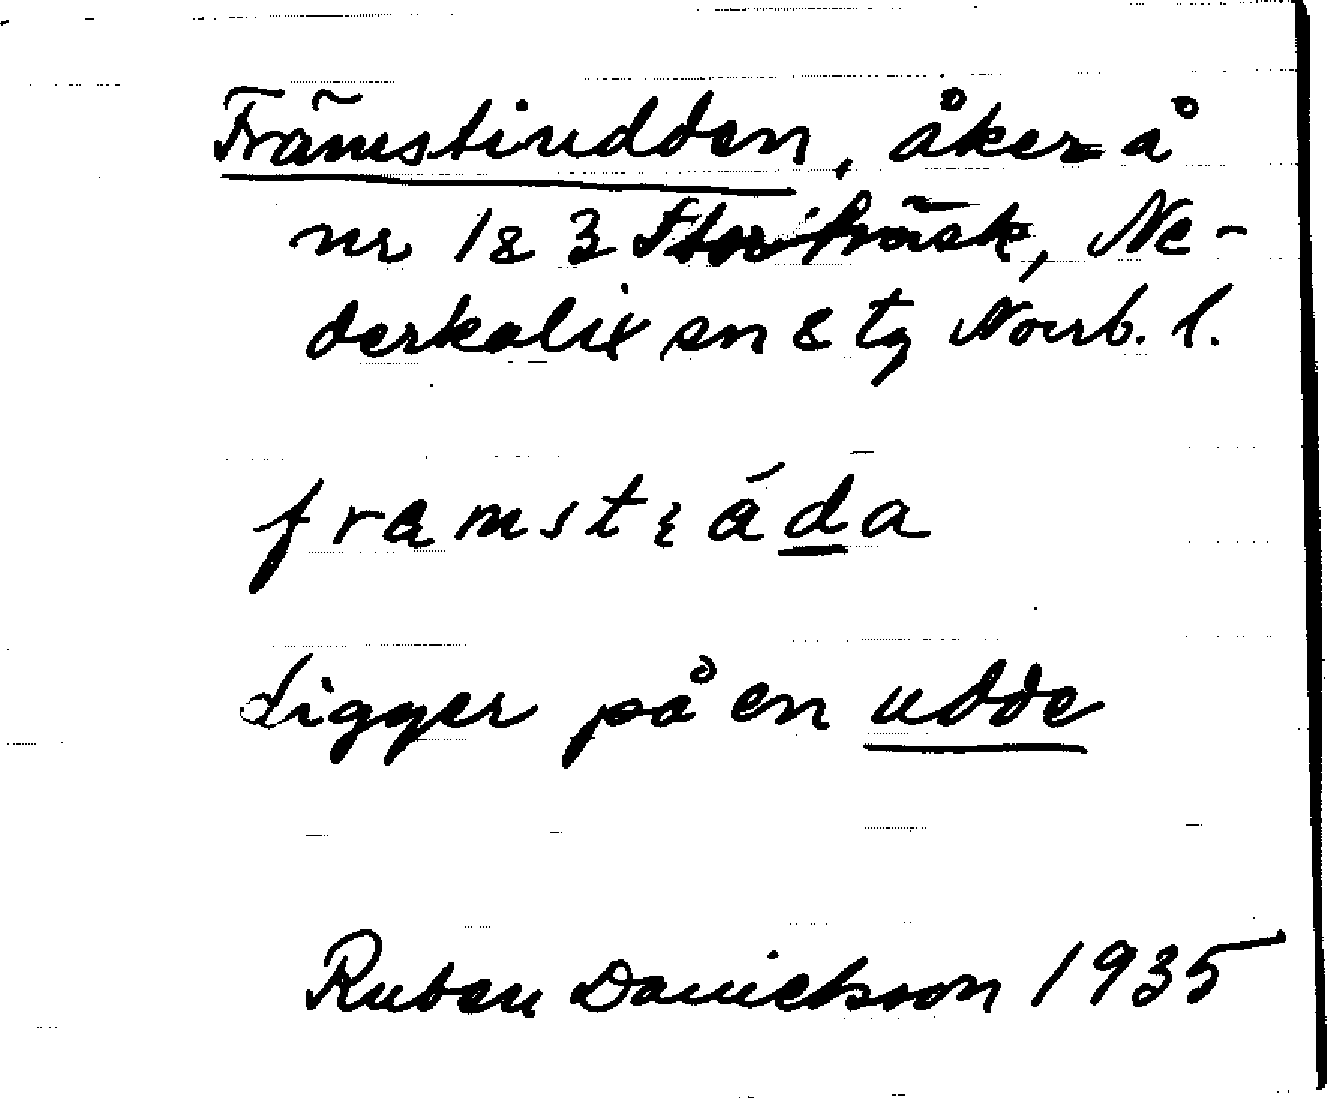 Främstiudden, åker å
nr 1 & 3 Storträsk, Ne-
derkalix sn & tg Norrb. l.
framstɩáda
Ligger på en udde
Ruben Danielsson 1935